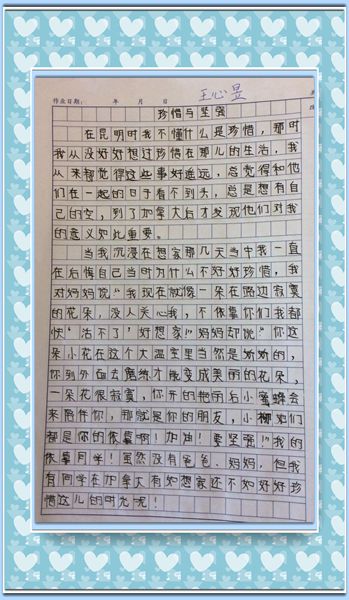 作业日期： 年 月 日 王心昱
珍惜与坚强
在昆明时我不懂什么是珍惜，那时
我从没好好想过珍惜在那儿的生活，我
从来都觉得这些事好遥远，总觉得和他
们在一起的日子看不到头，总是想有自
己的空，到了加拿大后才发现他们对我
的意义如此重要。
当我沉浸在想家那几天当中我一直
在后悔自己当时为什么不好好珍惜，我
对妈妈说“我现在就像一朵在路边寂寞
的花朵，没人关心我，不依靠你们我都
快“活不了”好想家！”妈妈却说“你这
朵小花在这个大温室里当然是娇娇的，
你到外面去磨练才能变成美丽的花朵，
一朵花很寂寞，你开的艳丽后小蜜蜂会
来陪伴你，那就是你的朋友，小柳她们
都是你的依靠啊！加油！要坚强！”我的
依靠同学！虽然没有爸爸、妈妈，但我
有同学在加拿大有如想家还不如好好珍
惜这儿的时光呢！